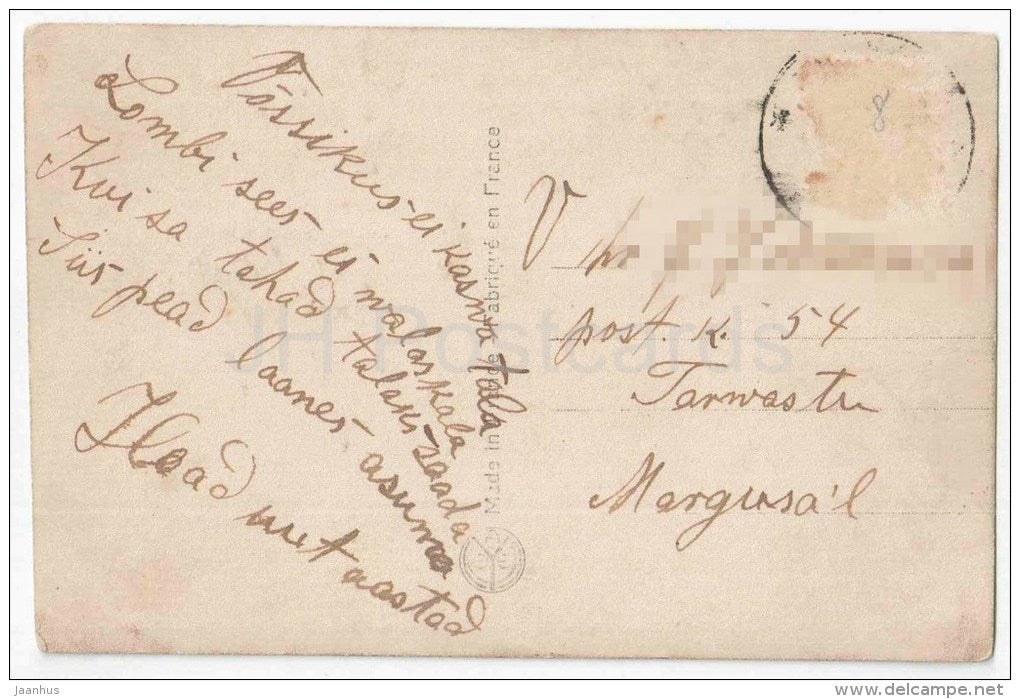 Võssikus ei kasva tala
Lombi sees ei malaskala
Kui sa tahad talaks saada
Siis pead laanes asuma
Head uut aastad
Made in France - Fabriqué en France
8
V
post. k. 54
Tarwastu
Margusa'l
JH Postcards
jaanhus
www.delcampe.net